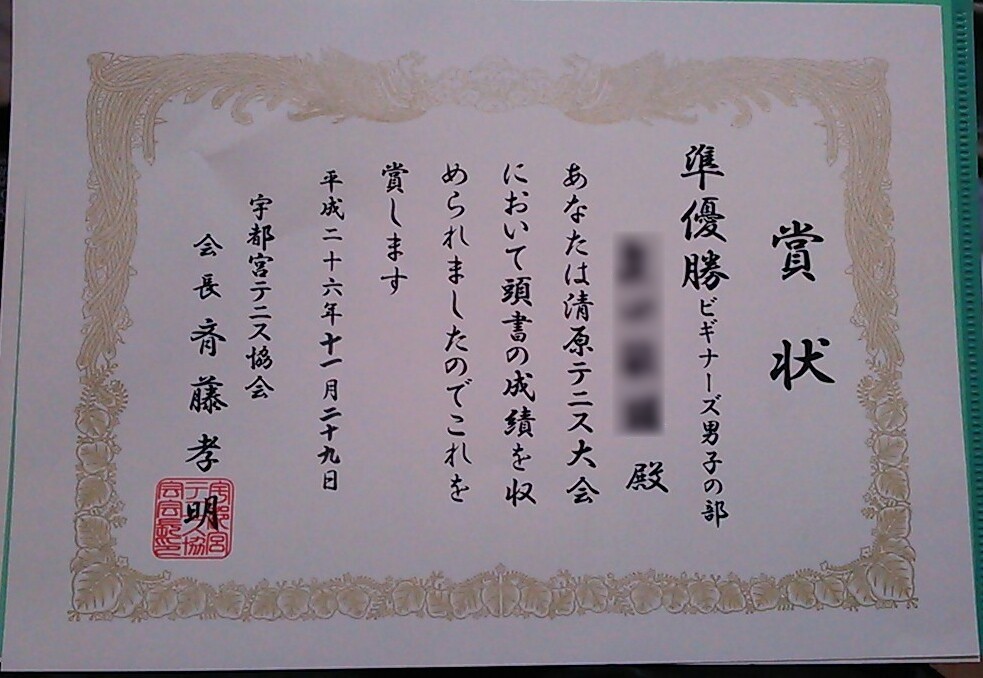 賞状
準優勝 ビギナーズ男子の部
殿
あなたは清原テニス大会
において頭書の成績を収
められましたのでこれを
賞します
平成二十六年十一月二十九日
宇都宮テニス協会
会長 斉藤孝明
宇都宮テニス協会会長印